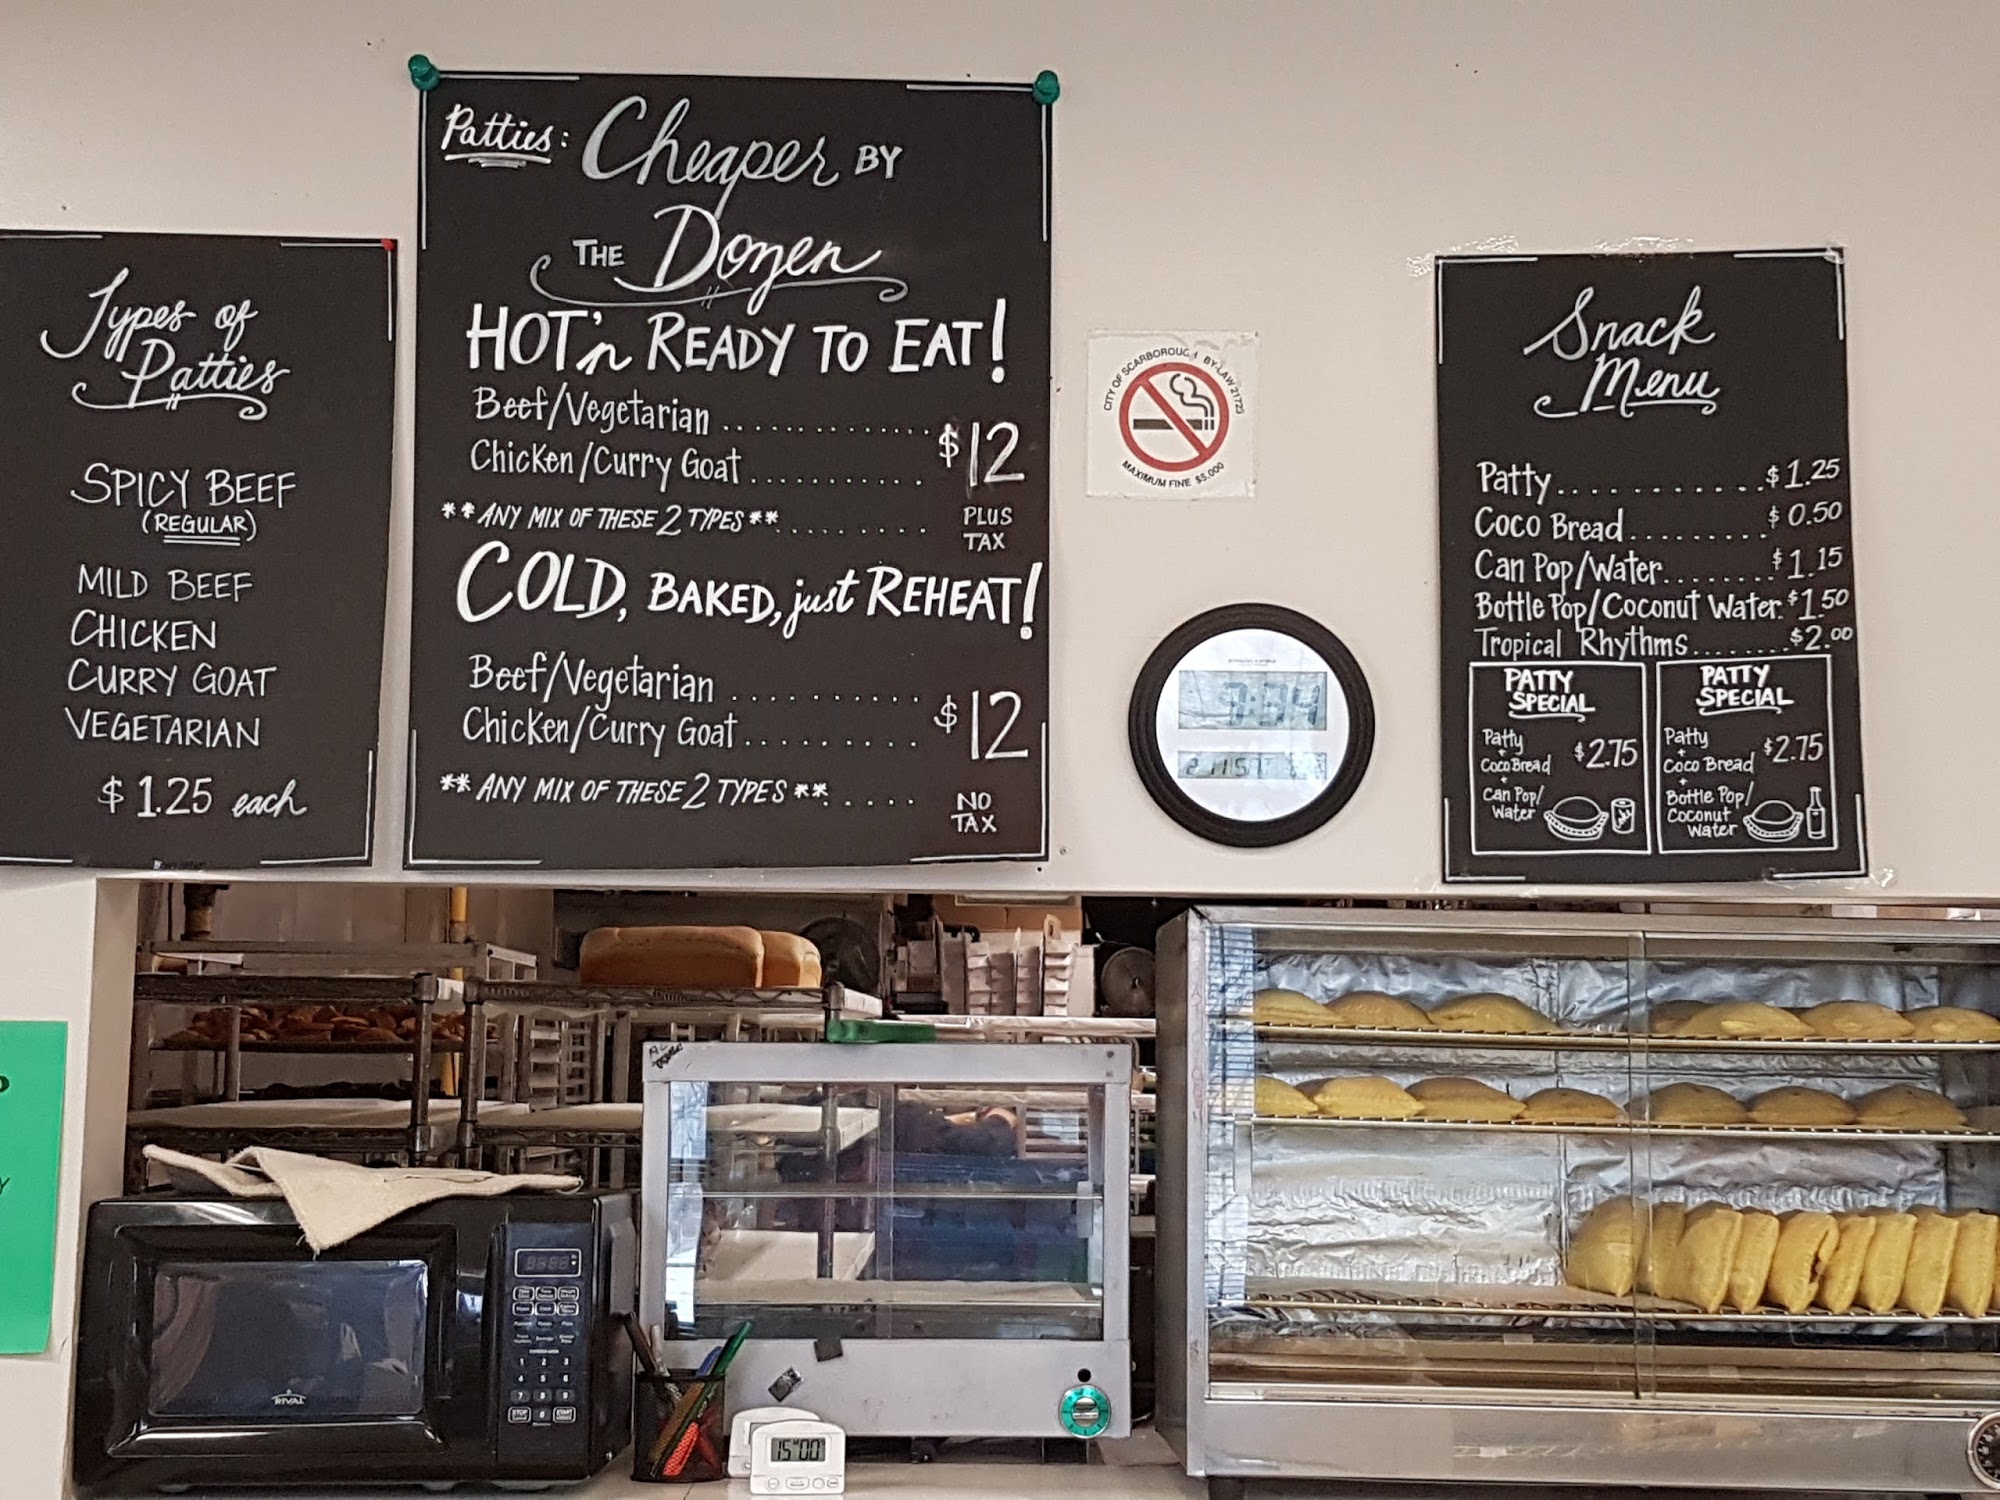 Types of
Patties
SPICY BEEF
(REGULAR)
MILD BEEF
CHICKEN
CURRY GOAT
VEGETARIAN
$1.25 each
Patties: Cheaper BY
THE Dozen
HOT 'n READY TO EAT!
Beef/Vegetarian ............. $12
Chicken/Curry Goat ...........
**ANY MIX OF THESE 2 TYPES** ....... PLUS
TAX
COLD, BAKED, just REHEAT!
Beef/Vegetarian .......... $12
Chicken/Curry Goat .........
**ANY MIX OF THESE 2 TYPES** .... NO
TAX
CITY OF SCARBOROUGH BY-LAW 21723
MAXIMUM FINE $5,000
Snack
Menu
Patty ............ $1.25
Coco Bread ......... $0.50
Can Pop/Water ....... $1.15
Bottle Pop/Coconut Water. $1.50
Tropical Rhythms ....... $2.00
PATTY
SPECIAL
Patty
+
Coco Bread
+
Can Pop/
Water
$2.75
PATTY
SPECIAL
Patty
+
Coco Bread
+
Bottle Pop/
Coconut
Water
$2.75
RIVAL
1 2 3
4 5 6
7 8 9
STOP 0 START
15 00